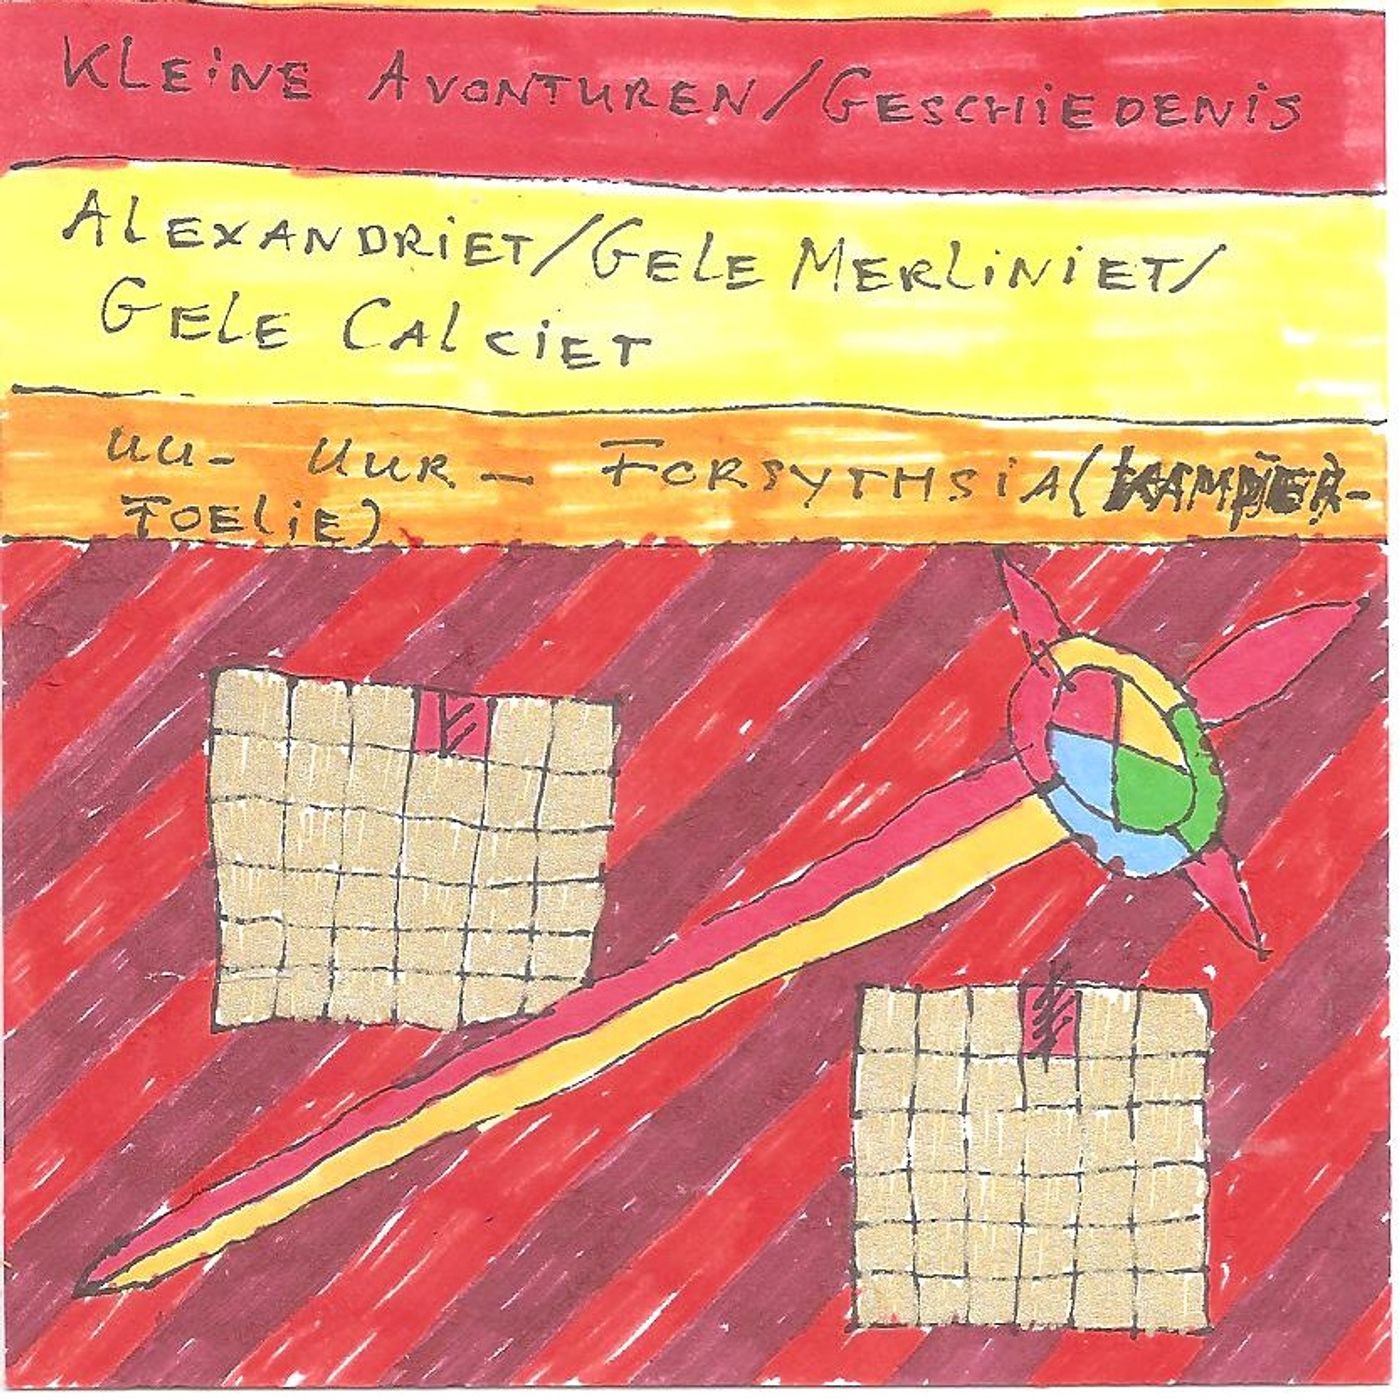 KLEINE AVONTUREN/GESCHIEDENIS
ALEXANDRIET/GELE MERLINIET/
GELE CALCIET
UU- UUR- FORSYTHSIA(KAMPER-
FOELIE)